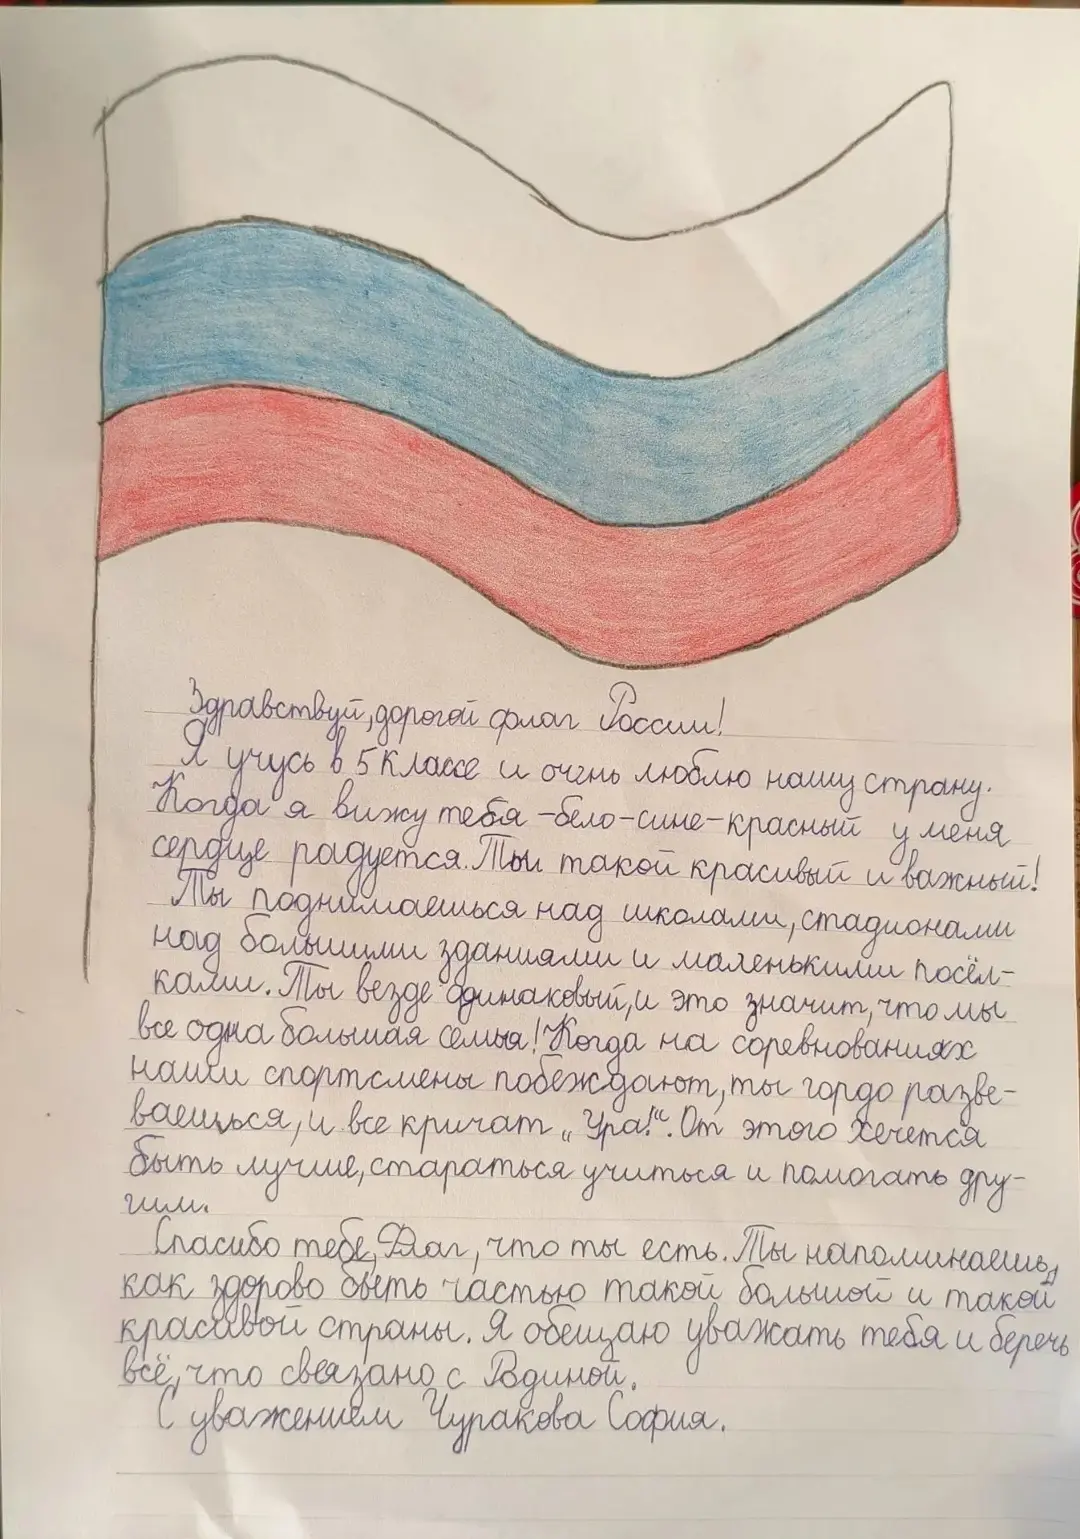 Здравствуй, дорогой флаг России!
Я учусь в 5 классе и очень люблю нашу страну.
Когда я вижу тебя - бело-сине-красный у меня
сердце радуется. Ты такой красивый и важный!
Ты поднимаешься над школами, стадионами
над большими зданиями и маленькими посёл-
ками. Ты везде одинаковый, и это значит, что мы
все одна большая семья! Когда на соревнованиях
наши спортсмены побеждают, ты гордо разве-
ваешься, и все кричат „Ура!“. От этого хочется
быть лучше, стараться учиться и помогать дру-
гим.
Спасибо тебе, Флаг, что ты есть. Ты напоминаешь,
как здорово быть частью такой большой и такой
красивой страны. Я обещаю уважать тебя и беречь
всё, что связано с Родиной.
С уважением Чуракова София.